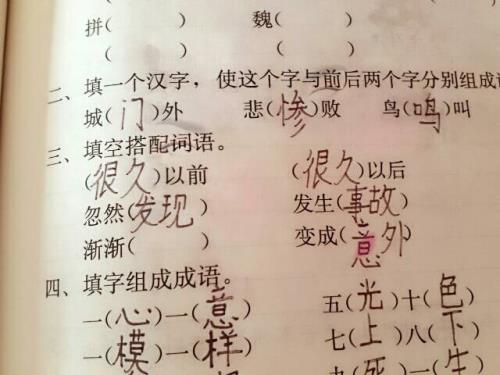 拼( ) 魏( )
( ) ( )
二、填一个汉字，使这个字与前后两个字分别组成词
城(门)外 悲(惨)败 鸟(鸣)叫
三、填空搭配词语。
(很久)以前 (很久)以后
忽然(发现) 发生(事故)
渐渐( ) 变成(意外)
四、填字组成成语。
一(心)一(意) 五(光)十(色)
一(模)一(样) 七(上)八(下)
九(死)一(生)